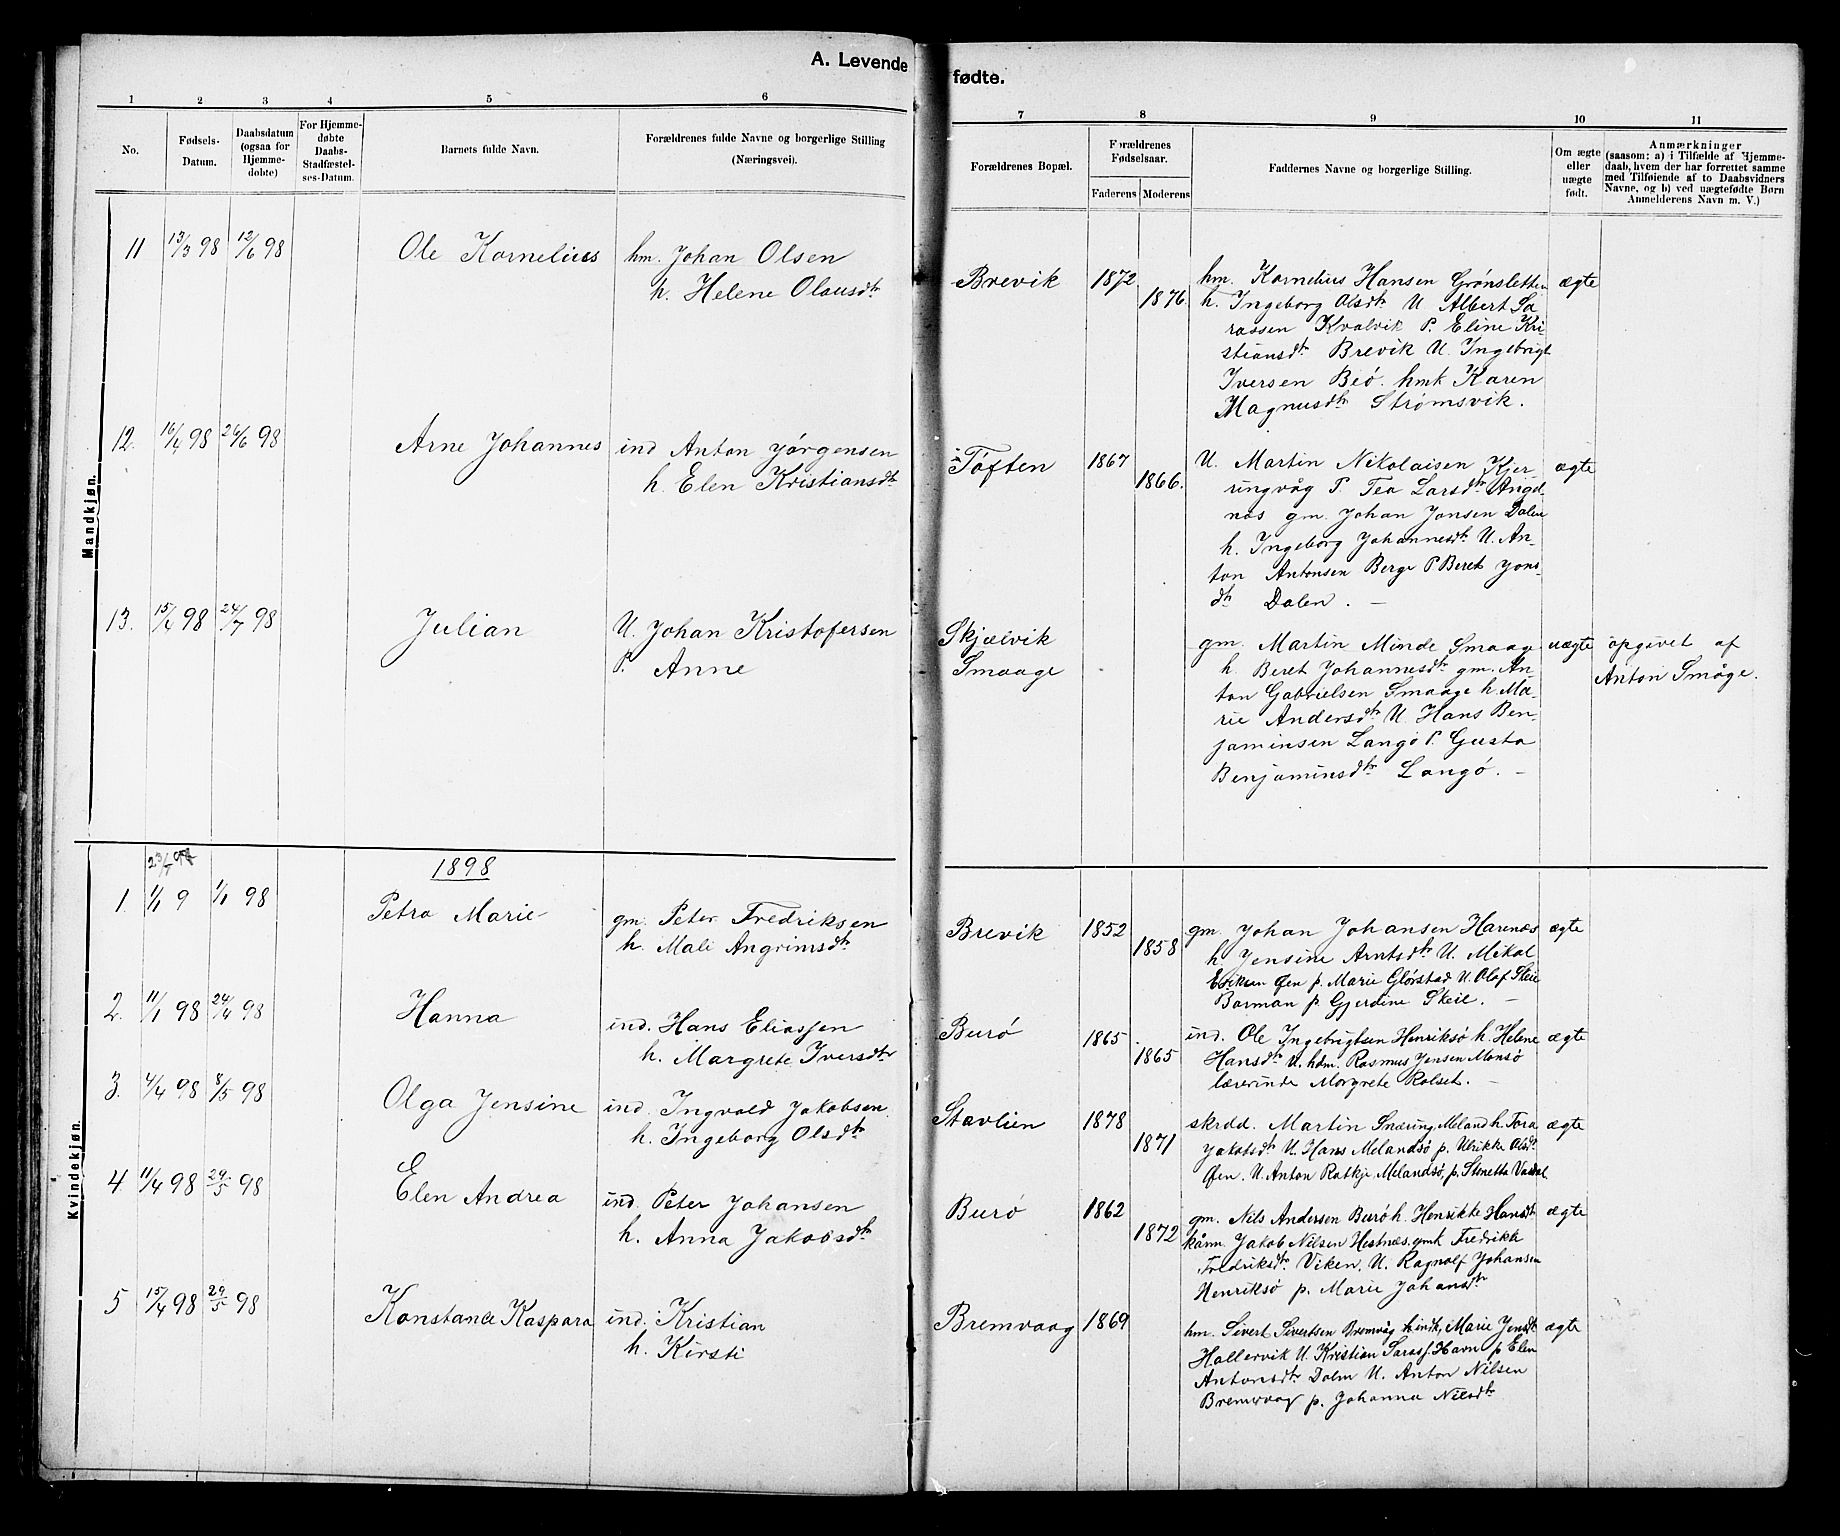 A. Levende fødte.
1 2 3 4 5 6 7 8 9 10 11
No.
Fødsels-
Datum.
Daabsdatum
(ogsaa for
Hjemme-
døbte)
For Hjemme-
døbte
Daabs-
Stadfæstel-
ses-Datum.
Barnets fulde Navn.
Forældrenes fulde Navne og borgerlige Stilling
(Næringsvei).
Forældrenes Bopæl.
Forældrenes
Fødselsaar.
Faderens Moderens
Faddernes Navne og borgerlige Stilling.
Om ægte
eller
uægte
født.
Anmærkninger
(saasom: a) i Tilfælde af Hjemme-
daab, hvem der har forrettet samme
med Tilføiende af to Daabsvidners
Navne, og b) ved uægtefødte Børn
Anmelderens Navn m. V.)
Mandkjøn.
11 13/3 98 12/6 98 Ole Kornelius
hm. Johan Olsen
h. Helene Olausdtr
Brevik 1872 1876.
hm. Kornelius Hansen Grønsletten
h. Ingeborg Olsdtr U Albert La
rassen Kvalvik P. Eline Kri-
stiansdtr Brevik U. Ingebrigt
Iversen Beø. hmk Karen
Magnusdtr Strømsvik.
ægte
12. 16/4 98 26/6 98 Arne Johannes
ind Anton Jørgensen
h. Elen Kristiansdtr
Tøften 1867 1866.
U. Martin Nikolaisen Kjer-
ringvåg P. Tea Larsdtr Angel-
nas gm. Johan Jonsen Dalen
h. Ingeborg Johannesdtr U. An-
ton Antonsen Berge P. Beret Jons-
dtr Dalen. -
ægte
13. 15/4 98 24/7 98 Julian
U. Johan Kristofersen
P. Anne
Skjælvik
Smaage
gm. Martin Minde Smaage
h. Beret Johannesdtr gm. An-
ton Gabrielsen Smaage h. Ma-
rie Andersdtr U. Hans Ben-
jaminsen Langø P. Gusta
Benjaminsdtr Langø. -
uægte
opgivet af
Anton Småge.
Kvindekjøn.
1898
1. 1/1 9 1/1 98 Petra Marie
gm. Peter Fredriksen
h. Mali Angrimsdtr
Brevik 1852 1858
gm. Johan Johansen Harenæs
h. Jensine Arntsdtr U. Mikal
Eriksen Øen p. Marie Glørstad U. Olaf Skeie
Barman p. Gjerdine Skeie. -
ægte
2. 11/1 98 24/4 98 Hanna
ind. Hans Eliassen
h. Margrete Iversdtr
Burø 1865 1865
ind. Ole Ingebrigtsen Henriksø h. Helene
Hansdtr U. hdm. Rasmus Jensen Monsø
lærerinde Morgrete Rolset. -
ægte
3. 4/4 98 8/5 98 Olga Jensine
ind. Ingvald Jakobsen
h. Ingeborg Olsdtr
Stavlien 1878 1871
skrdd. Martin Snæring Meland h. Tora
Jakobsdtr U. Hans Melandsø p. Ulrikke Olsdtr
Øen. U. Anton Ratkje Melandsø, p. Stenette
ægte
4. 11/4 98 29/5 98 Elen Andrea
ind. Peter Johansen
h. Anna Jakobsdtr
Burø 1862 1872
gm. Nils Andersen Burø h. Henrikke Hansdtr
kårm. Jakob Nilsen Hestnæs, gmk Fredrikk
Fredriksdtr Viken, U. Ragnolf Johansen
Henriksø p. Marie Johansdtr
ægte
5 15/4 98 29/5 98 Konstance Kaspara
ind. Kristian
h. Kirsti
Bremvaag 1869
hm. Sivert Sivertsen Bremvåg Marie Jensdtr
Hallervik U. Kristian Larass. Havn p Elen
Antonsdtr Dolm U. Anton Nilsen
Bremvaag p. Johanna Nilsdtr
ægte